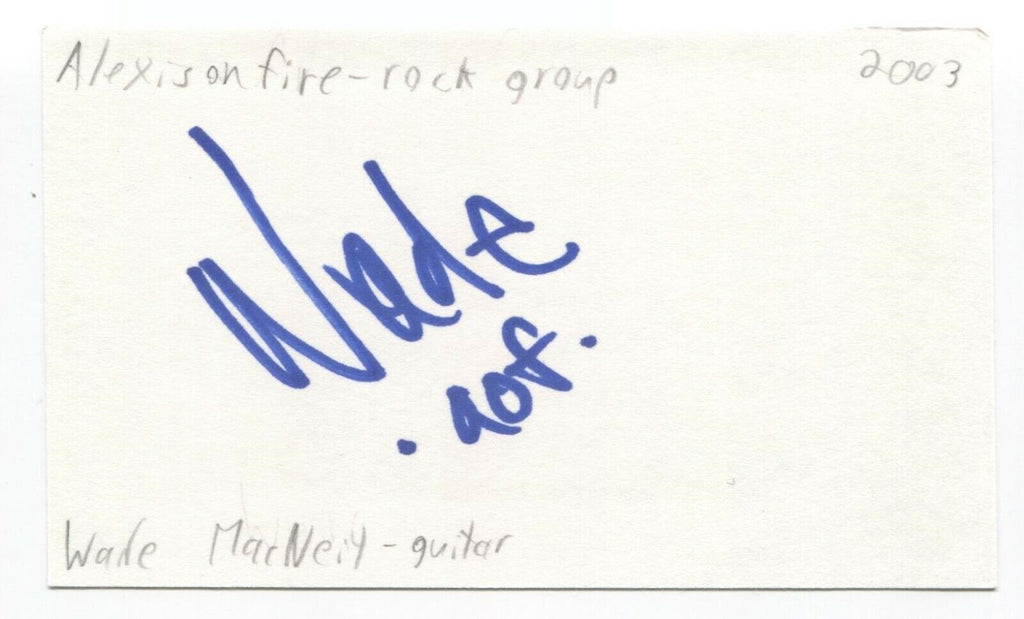 Alexisonfire-rock group 2003
Wade
.aof.
Wade MacNeil - guitar